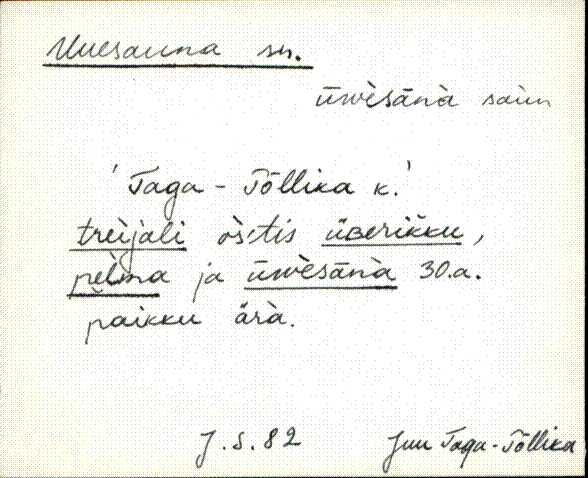 Uuesauna sn.
ūwèsānà saun
'Taga-Tõllika k.'
treijali òs'tis ūʙerikku,
pelma ja ūwèsānà 30.a.
paikku ärà.
J.S.82 Juu Taga-Tõllika